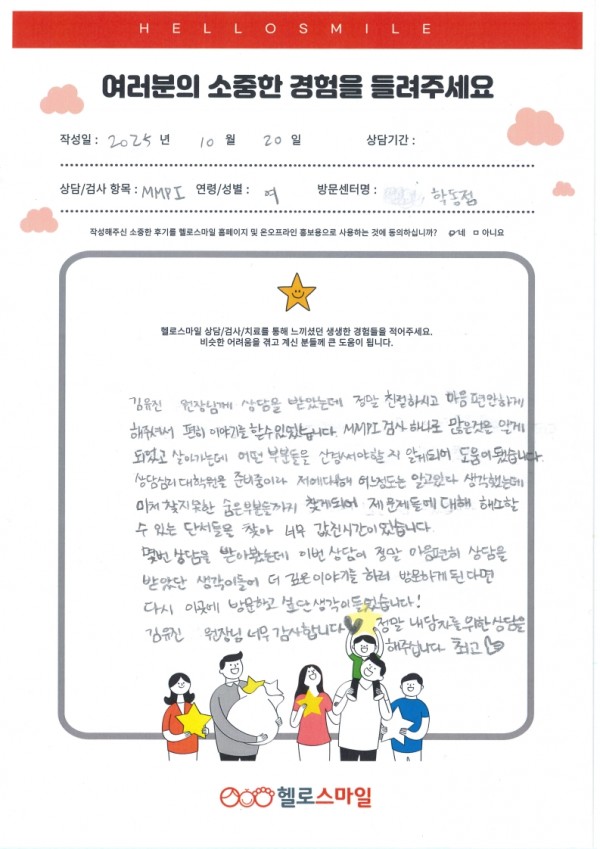 HELLOSMILE
여러분의 소중한 경험을 들려주세요
작성일 : 2025 년 10 월 20 일 상담기간 :
상담/검사 항목 : MMPI 연령/성별 : 여 방문센터명 : 학동점
작성해주신 소중한 후기를 헬로스마일 홈페이지 및 온오프라인 홍보용으로 사용하는 것에 동의하십니까? 네 ㅁ 아니요
헬로스마일 상담/검사/치료를 통해 느끼셨던 생생한 경험들을 적어주세요.
비슷한 어려움을 겪고 계신 분들께 큰 도움이 됩니다.
김유진 원장님께 상담을 받았는데 정말 친절하시고 마음 편안하게
해주셔서 편히 이야기를 할수있었습니다. MMPI 검사 하나로 많은것을 알게
되었고 살아가는데 어떤 부분들을 신경써야할 지 알게되어 도움이 됐습니다.
상담심리 대학원을 준비중이라 저에대해 어느정도는 알고있다 생각했는데
미처 찾지못한 숨은부분들까지 찾게되어 제 문제들에 대해 해소할
수 있는 단서들을 찾아 너무 값진시간이었습니다.
몇번 상담을 받아봤는데 이번 상담이 정말 마음편히 상담을
받았단 생각이들어 더 깊은 이야기를 하러 방문하게 된다면
다시 이곳에 방문하고 싶단 생각이 들었습니다!
김유진 원장님 너무 감사합니다 정말 내담자를 위한 상담을
해주십니다 최고
헬로스마일